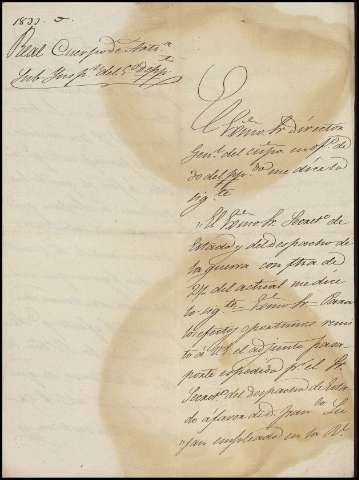 1833
Real Cuerpo de Art.ª
Sub Insp.on del 5.º
El Exmo Sr Director
Gen.l del cuerpo en of.º de
30 del pp.do me dice lo
sig.te
"El Exmo Sr Secret.º de
Estado y del despacho de
la guerra con fha de
27 del actual me dice
lo sig.te Exmo Sr Para
los efectos oportunos remi
to á V.E. el adjunto pasa
porte expedido p.r el Sr
Secret.º del despacho de Esta
do á favor de d. Fran.co Lu
jan empleado en la R.l